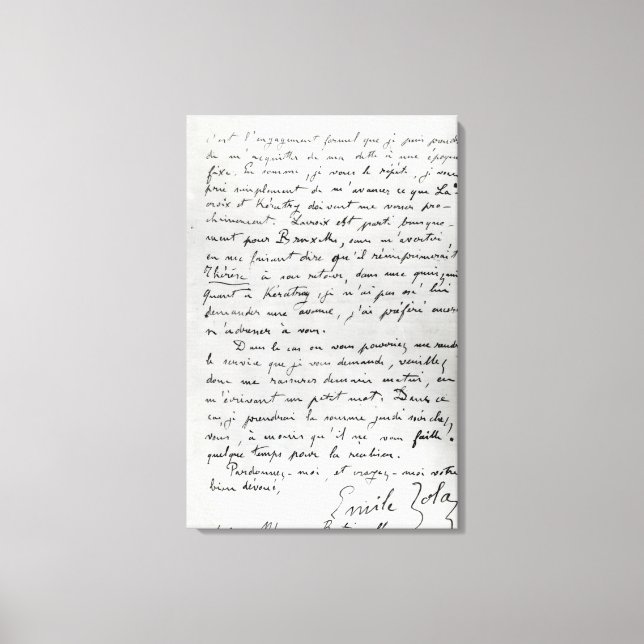 c'est l'engagement formel que je puis prendre
de m'acquitter de ma dette à une époque
fixe. En somme, je vous le répète, je vous
prie simplement de m'avancer ce que La-
croix et Kératry doivent me verser pro-
chainement. Lacroix est parti brusque-
ment pour Bruxelles, sans m'avertir,
en me faisant dire qu'il réimprimerait
Thérèse à son retour, dans une quinzaine
Quant à Kératry, je n'ai pas osé lui
demander une avance, j'ai préféré encore
m'adresser à vous.
Dans le cas où vous pourriez me rendre
le service que je vous demande, veuillez
donc me rassurer demain matin, en
m'écrivant un petit mot. Dans ce
cas, je prendrai la somme jeudi soir chez
vous, à moins qu'il ne vous faille
quelque temps pour la réaliser.
Pardonnez-moi, et croyez-moi votre
bien dévoué,
Emile Zola